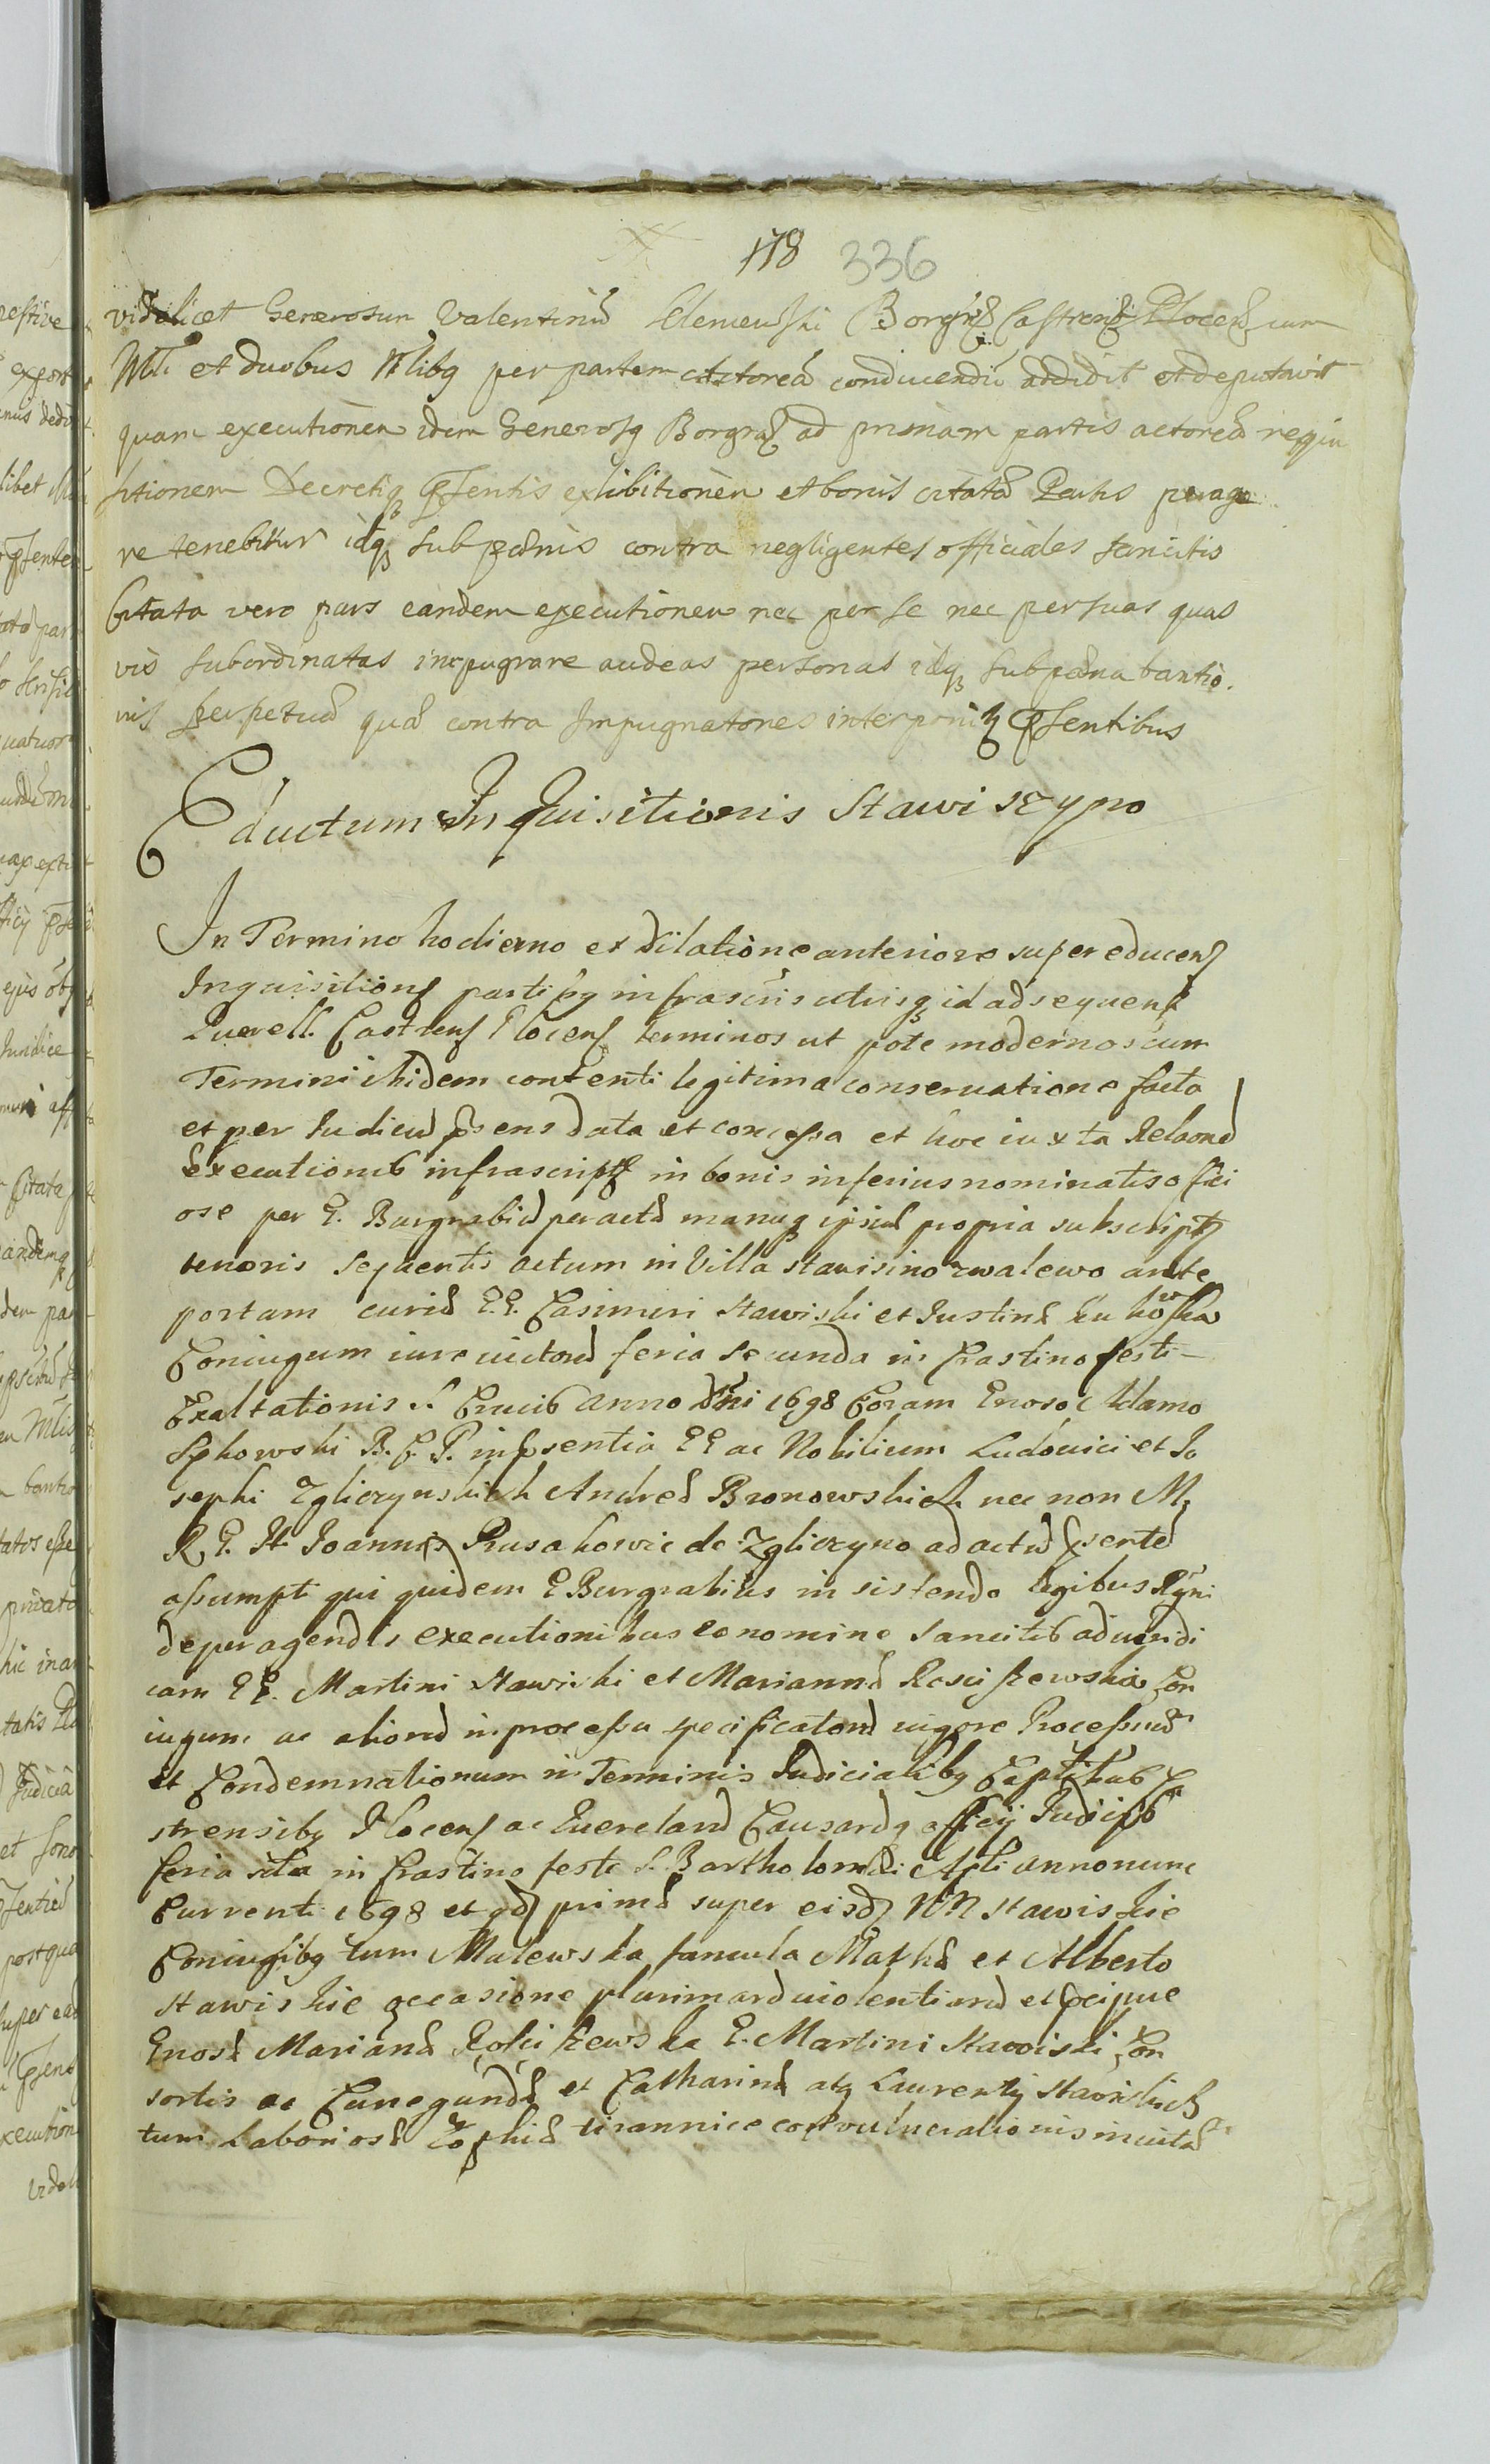 178 336
videlicet Generosum Valentinũ Borgrab Castrens Plocens cum
Mli et duobus Nlibq per partem actoreã conducendũ addidit et deputavit
quam executionem idem Generosq Borgrab ad primam partis actoreã requi
sitionem Decretiq pssentis exhibitionem et bonis citatã Partis perage
re tenebitur idq sub pœnis contra negligentes officiales sancitis
Citata vero pars eandem executionem nec per se nec per suas quas
vis subordinatas impugnare audeas personas idq sub pœna bannitio
nis perpetuã quã contra Impugnatores interponit pssentibus
Eductum Inquisitionis Stawiszyno
In Termino hodierno ex dilatione anteriore super educens
Inquisitions partibq infrascris utrisq id ad sequens
Querell. Castrens Plocens terminos ut pote modernos cum
Termini ibidem contenti legitima conservatione facta
et per Iudiciũ psens data et concessa et hoc iuxta Relaonẽ
Executionis infrascript in bonis inferius nominatis offici
ose per G. Burgrabiũ peractã manuq ipsius propria subscript
tenoris sequentis actum in Villa stawisino zwalewo ante
portam curiæ G.G. Casimiri Stawiski et Iustinæ
Coniugum iure victorũ feria secunda in Crastino festi
Exaltationis S. Crucis anno Dni 1698 Coram Gnoso Adamo
B.C.P. in psentia GG ac Nobilium Ludovici et Jo
sephi Zgliczynskich Andreæ Bronowskich nec non M
R. P. Joannis Rusakowic de Zgliczyno ad actũ psentẽ
assumpt qui quidem G Burgrabius insistendo legibus Rgni
de peragendis executionibus eo nomine sancitis ad iuridi
cam GG. Martini Stawiski et Mariannæ Rosciszewska Con
iugum ac aliorũ in processu specificatorũ vigore Processuũ
et Condemnationum in Terminis Iudicialibq Captibus Ca
strensibq Plocens ac Querelarũ Causarũq officij Iudicijs
feria sexta in Crastino feste S. Bartholomæi Apli anno nunc
Currenti 1698 et qd primæ super eisd NN Stawiskie
Coniugibq tum Malewska famula Mathæ et Alberto
Stawiskie occasione plurimarũ violentiarũ et pcipue
Gnosæ Marianæ Rosciszewska G. Martini Stawiski Con
sortis ac Cunegundæ et Catharinæ atq Laurentij Stawiskich
tum Laboriosæ Zophiæ tirannice convulnerationis